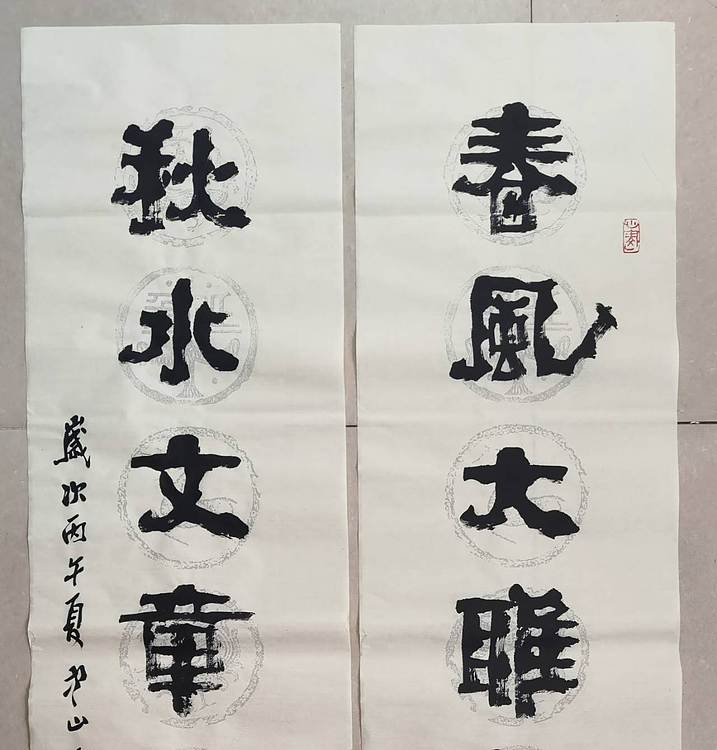 春風大雅
秋水文章
歲次丙午夏 山